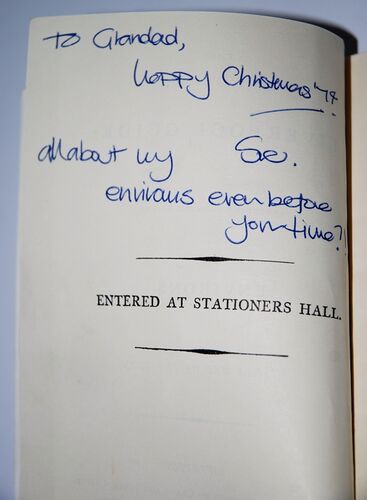 To Grandad,
Happy Christmas '79.
Sue.
all about my
environs even before
your time?!
ENTERED AT STATIONERS HALL.